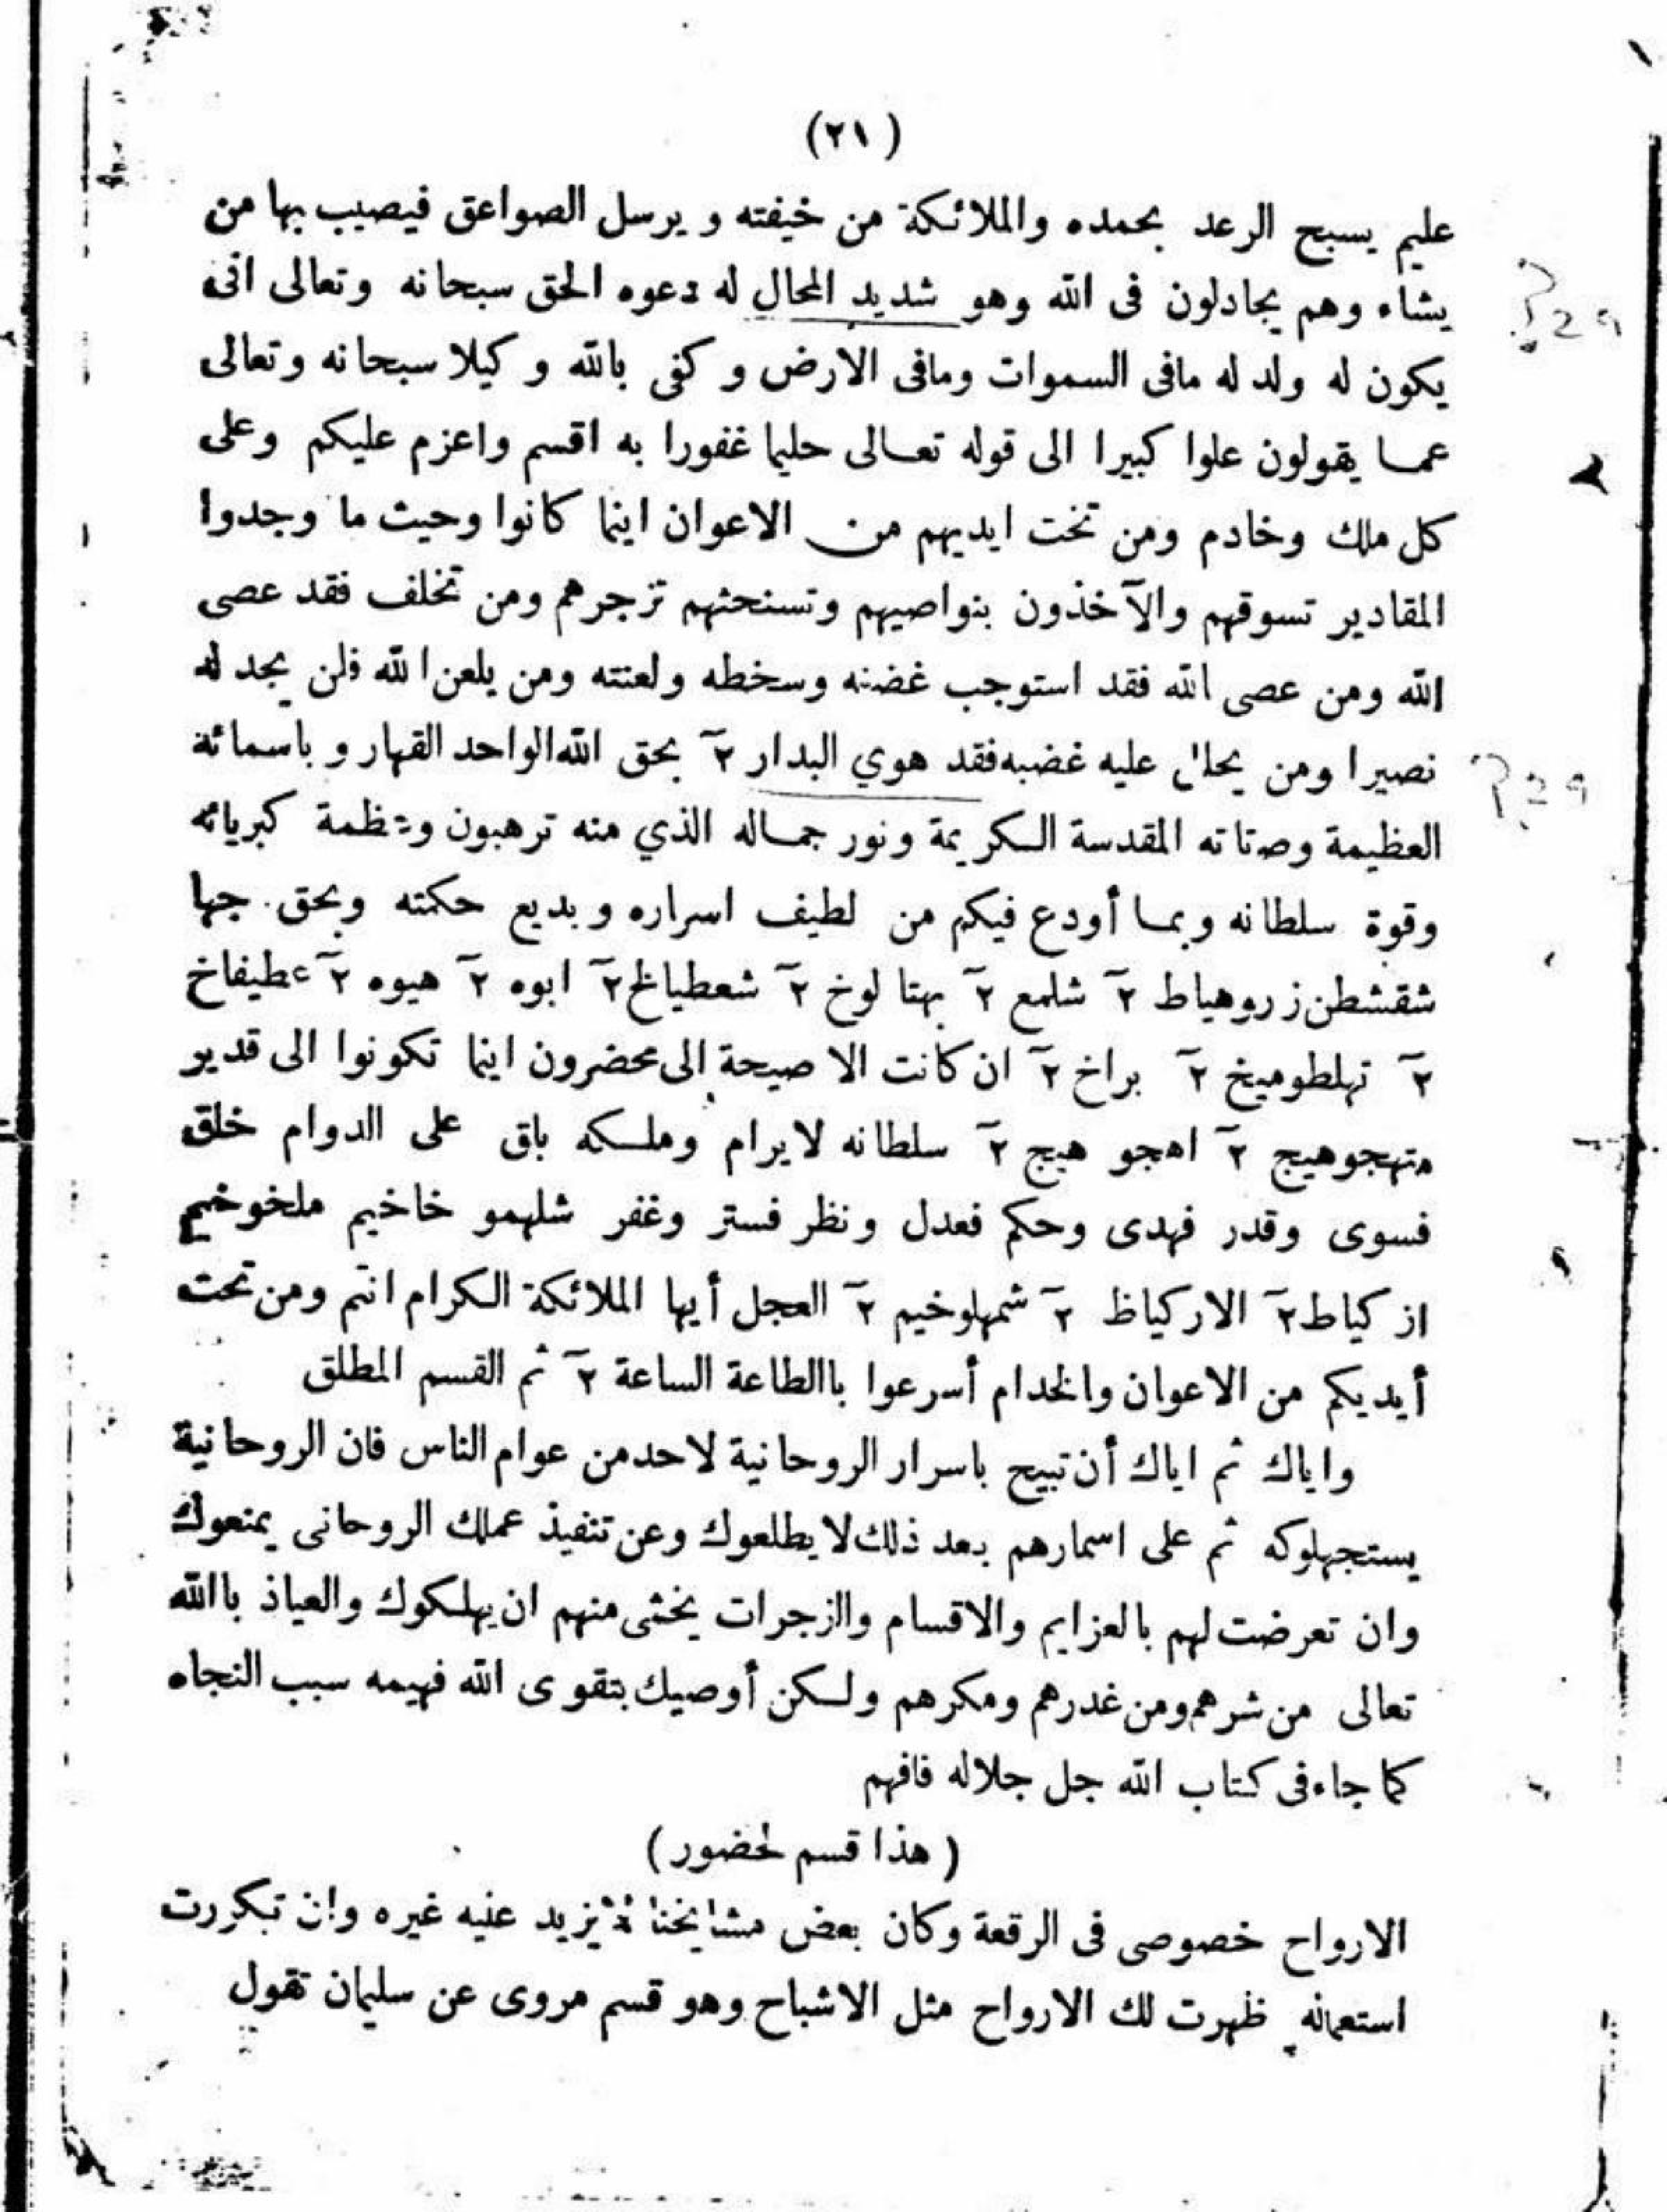 (٢١)
عليم يسبح الرعد بحمده والملائكة من خيفته ويرسل الصواعق فيصيب بها من
يشاء وهم يجادلون فى الله وهو شديد المحال له دعوه الحق سبحانه وتعالى انى
يكون له ولد له مافى السموات ومافى الارض وكفى بالله وكيلا سبحانه وتعالى
عما يقولون علوا كبيرا الى قوله تعالى حليما غفورا به اقسم واعزم عليكم وعلى
كل ملك وخادم ومن تحت ايديهم من الاعوان اينما كانوا وحيث ما وجدوا
المقادير تسوقهم والآخذون بنواصيهم وتستحثهم تزجرهم ومن تخلف فقد عصى
الله ومن عصى الله فقد استوجب غضبه وسخطه ولعنته ومن يلعن الله فلن يجد له
نصيرا ومن يحلل عليه غضبه فقد هوي البدار ٢ بحق الله الواحد القهار وباسمائه
العظيمة وصفاته المقدسة الكريمة ونور جماله الذي منه ترهبون وعظمة كبريائه
وقوة سلطانه وبما أودع فيكم من لطيف اسراره وبديع حكمته وبحق جها
شقشطن زروهياط ٢ شلمع ٢ بهتا لوخ ٢ شعطيالخ ٢ ابوه ٢ هيوه ٢ عطيفاخ
٢ تهلطوميخ ٢ براخ ٢ ان كانت الا صيحة الى محضرون اينما تكونوا الى قدير
متهجوهيج ٢ اهجو هيج ٢ سلطانه لايرام وملكه باق على الدوام خلق
فسوى وقدر فهدى وحكم فعدل ونظر فستر وغفر شلهمو خاخيم ملخوخيم
از كياط ٢ الاركياظ ٢ شمهلوخيم ٢ العجل أيها الملائكة الكرام انتم ومن تحت
أيديكم من الاعوان والخدام أسرعوا باالطاعة الساعة ٢ ثم القسم المطلق
واياك ثم اياك أن تبيح باسرار الروحانية لاحد من عوام الناس فان الروحانية
يستجهلوكه ثم على اسمارهم بعد ذلك لا يطلعوك وعن تنفيذ عملك الروحانى يمنعوك
وان تعرضت لهم بالعزايم والاقسام والزجرات يخشى منهم ان يهلكوك والعياذ باالله
تعالى من شرهم ومن غدرهم ومكرهم ولكن أوصيك بتقوى الله فهيمه سبب النجاه
كما جاء فى كتاب الله جل جلاله فافهم
(هذا قسم لحضور)
الارواح خصوصى فى الرقعة وكان بعض مشايخنا لا يزيد عليه غيره وان تكررت
استعماله ظهرت لك الارواح مثل الاشباح وهو قسم مروى عن سليمان تقول